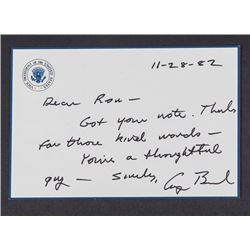 11-28-82
Dear Ron —
Got your note. Thanks
for those kind words —
You're a thoughtful
guy — Sincerely,